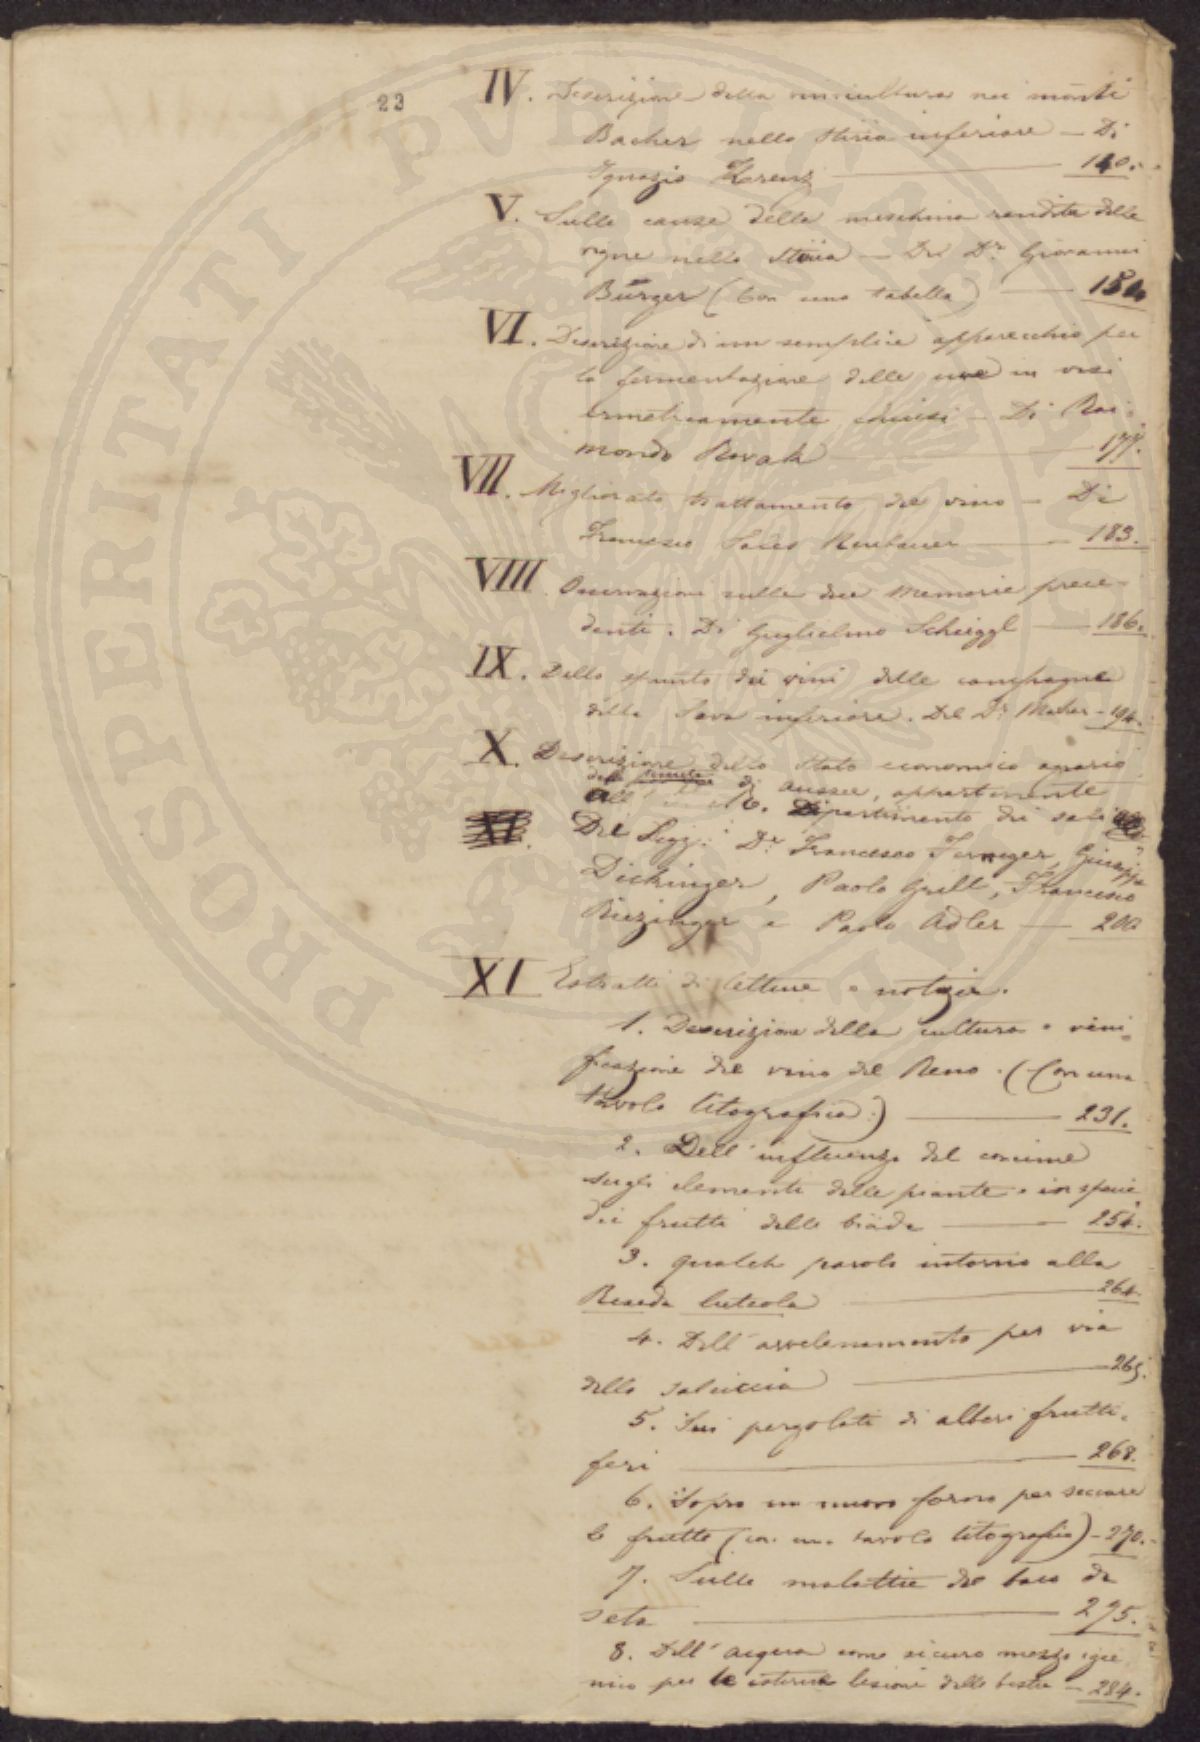 23
IV. Descrizione della vinicultura nei monti
Bacher nella Stiria inferiore — Di
Ignazio Krenz — 140.
V. Sulle cause della meschina rendita delle
vigne nella Stiria — Del Dr. Giovanni
Burger (Con una tabella) — 154
VI. Descrizione di un semplice apparecchio per
la fermentazione delle uve in vasi
ermeticamente chiusi — Di Rai-
mondo Novak — 177.
VII. Migliorato trattamento del vino — Di
Francesco — 183.
VIII Osservazioni sulle due Memorie prece-
denti. Di Guglielmo Scheiggl — 186.
IX. Dello spunto dei vini delle campagne
della Sava inferiore. Del Dr. Macher — 194.
X. Descrizione dello Stato economico agrario
di Aussee, appartenente
all' Dipartimento dei sali
XI. Dei Sigg.i Dr. Francesco Giuseppe
Dickinger, Paolo Grill, Francesco
e Paolo Adler — 200
XI Estratti di letture e notizie.
1. Descrizione della cultura e vini-
ficazione del vino del Reno. (Con una
tavola litografica.) — 231.
2. Dell' influenza del concime
sugli elementi delle piante e in specie
dei frutti delle biade — 254.
3. qualche parola intorno alla
Reseda luteola — 264.
4. Dell' avvelenamento per via
della salsiccia — 265.
5. Sui pergolati di alberi frutti-
feri — 268.
6. Sopra un nuovo forno per seccare
le frutta (con una tavola litografica) — 270.
7. Sulle malattie del baco da
seta — 275.
8. Dell' acqua come sicuro mezzo igie-
nico per le esterne lesioni delle bestie — 284.
PROSPERITATI PVBLICAE